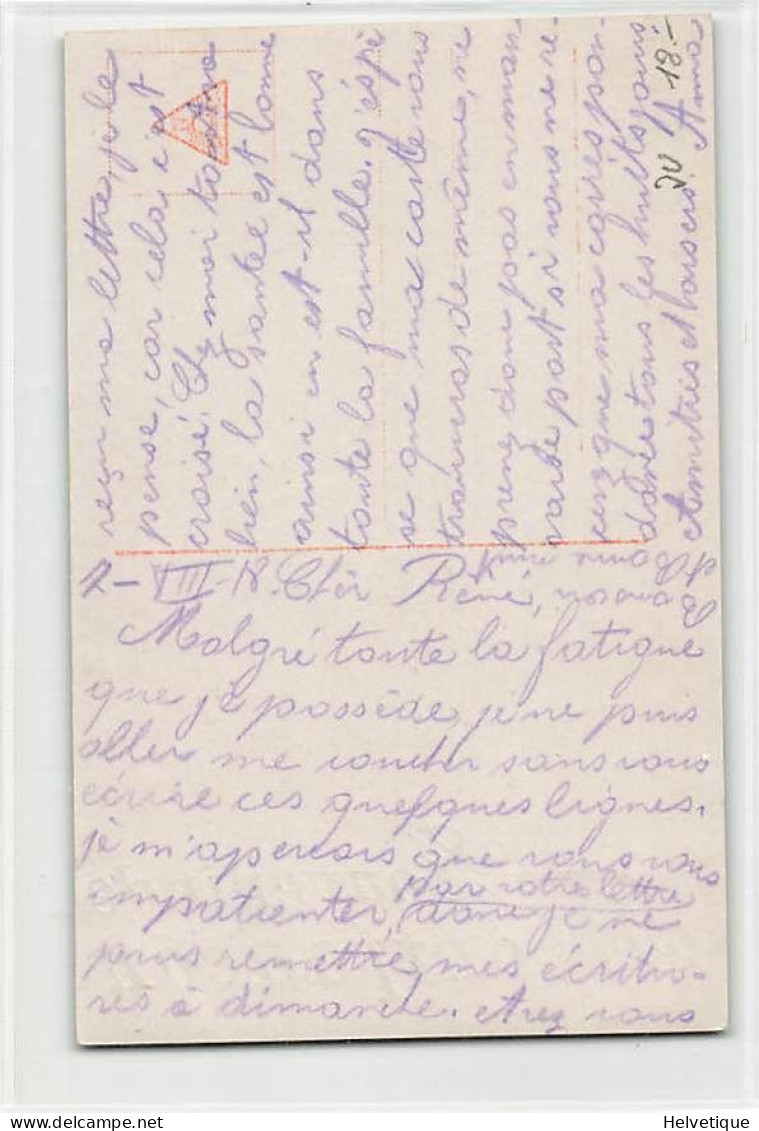 1-VIII-18. Chèr Réné,
Malgré toute la fatigue
que je possède, je ne puis
aller me coucher sans vous
écrire ces quelques lignes.
je m'apercois que vous vous
impatienter, par votre lettre
donc je ne
puis remettre mes écritu-
res à dimanche. Avez vous
reçu ma lettre, je le
pense, car cela c'est
croisé. Chez moi tout va
bien, la santée est bonne
ainsi en est-il dans
toute la famille. J'éspè
se que ma carte vous
trouveras de même, ne
prenez donc pas en mau
vaise part si vous ne re-
cevez que ma corréspon-
dance tous les huits jours
Amitiés et baisers Anna
Bonsoir,
Bonne nuit
18.-
Helvetique